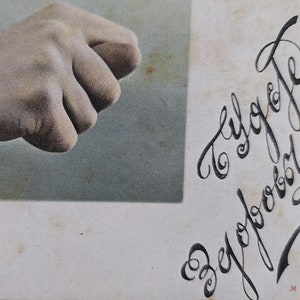 Будете
Здоровы